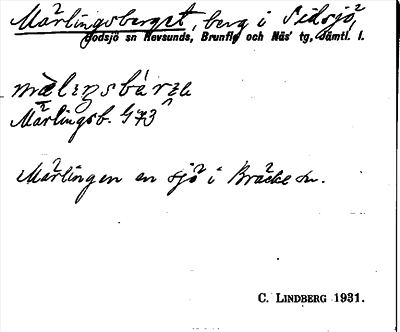 Mårlingsberget, berg i Sidsjö,
Bodsjö sn Revsunds, Brunflo och Näs' tg, Jämtl. l.
Mårlingsb. G73
Mårlingen en sjö i Bräcke sn.
C. LINDBERG 1931.